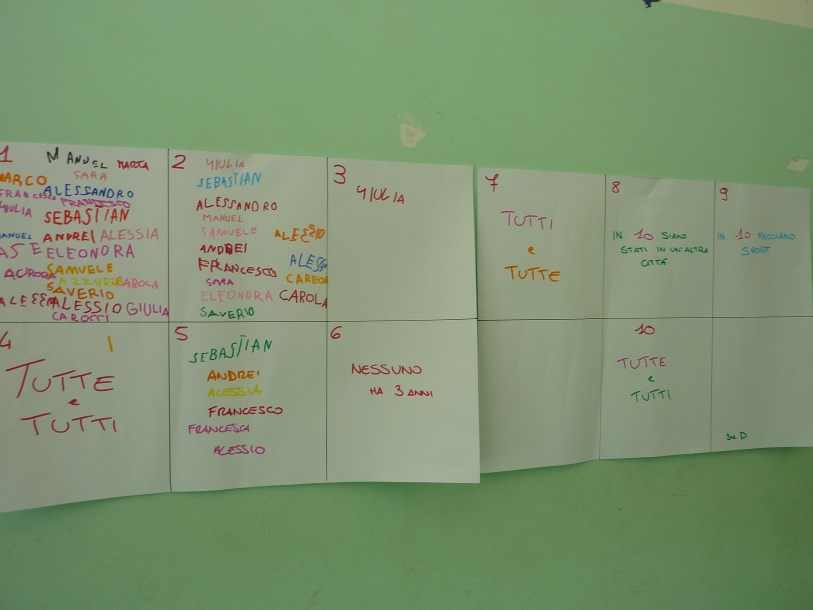 1
MANUEL MARTA
MARCO SARA
FRANCESCO ALESSANDRO
FRANCESCO
GIULIA SEBASTIAN
MANUEL ANDREI ALESSIA
ELEONORA
AURORA SAMUELE
AZZURRA CAROLA
SAVERIO
ALESSIO GIULIA
CAROTTI
2
GIULIA
SEBASTIAN
ALESSANDRO
MANUEL
SAMUELE ALESSIO
ANDREI
FRANCESCO
SARA
ELEONORA CAROLA
SAVERIO
3
GIULIA
4
TUTTE
e
TUTTI
5
SEBASTIAN
ANDREI
ALESSIA
FRANCESCO
FRANCESCA
ALESSIO
6
NESSUNO
HA 3 ANNI
7
TUTTI
e
TUTTE
8
IN 10 SIAMO
STATI IN UN'ALTRA
CITTÀ
9
IN 10 FACCIAMO
SPORT
10
TUTTE
e
TUTTI